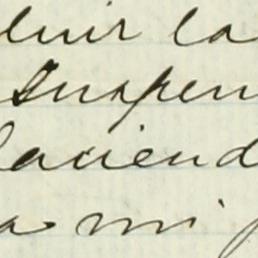 luir la
suspen
haciend
a mi